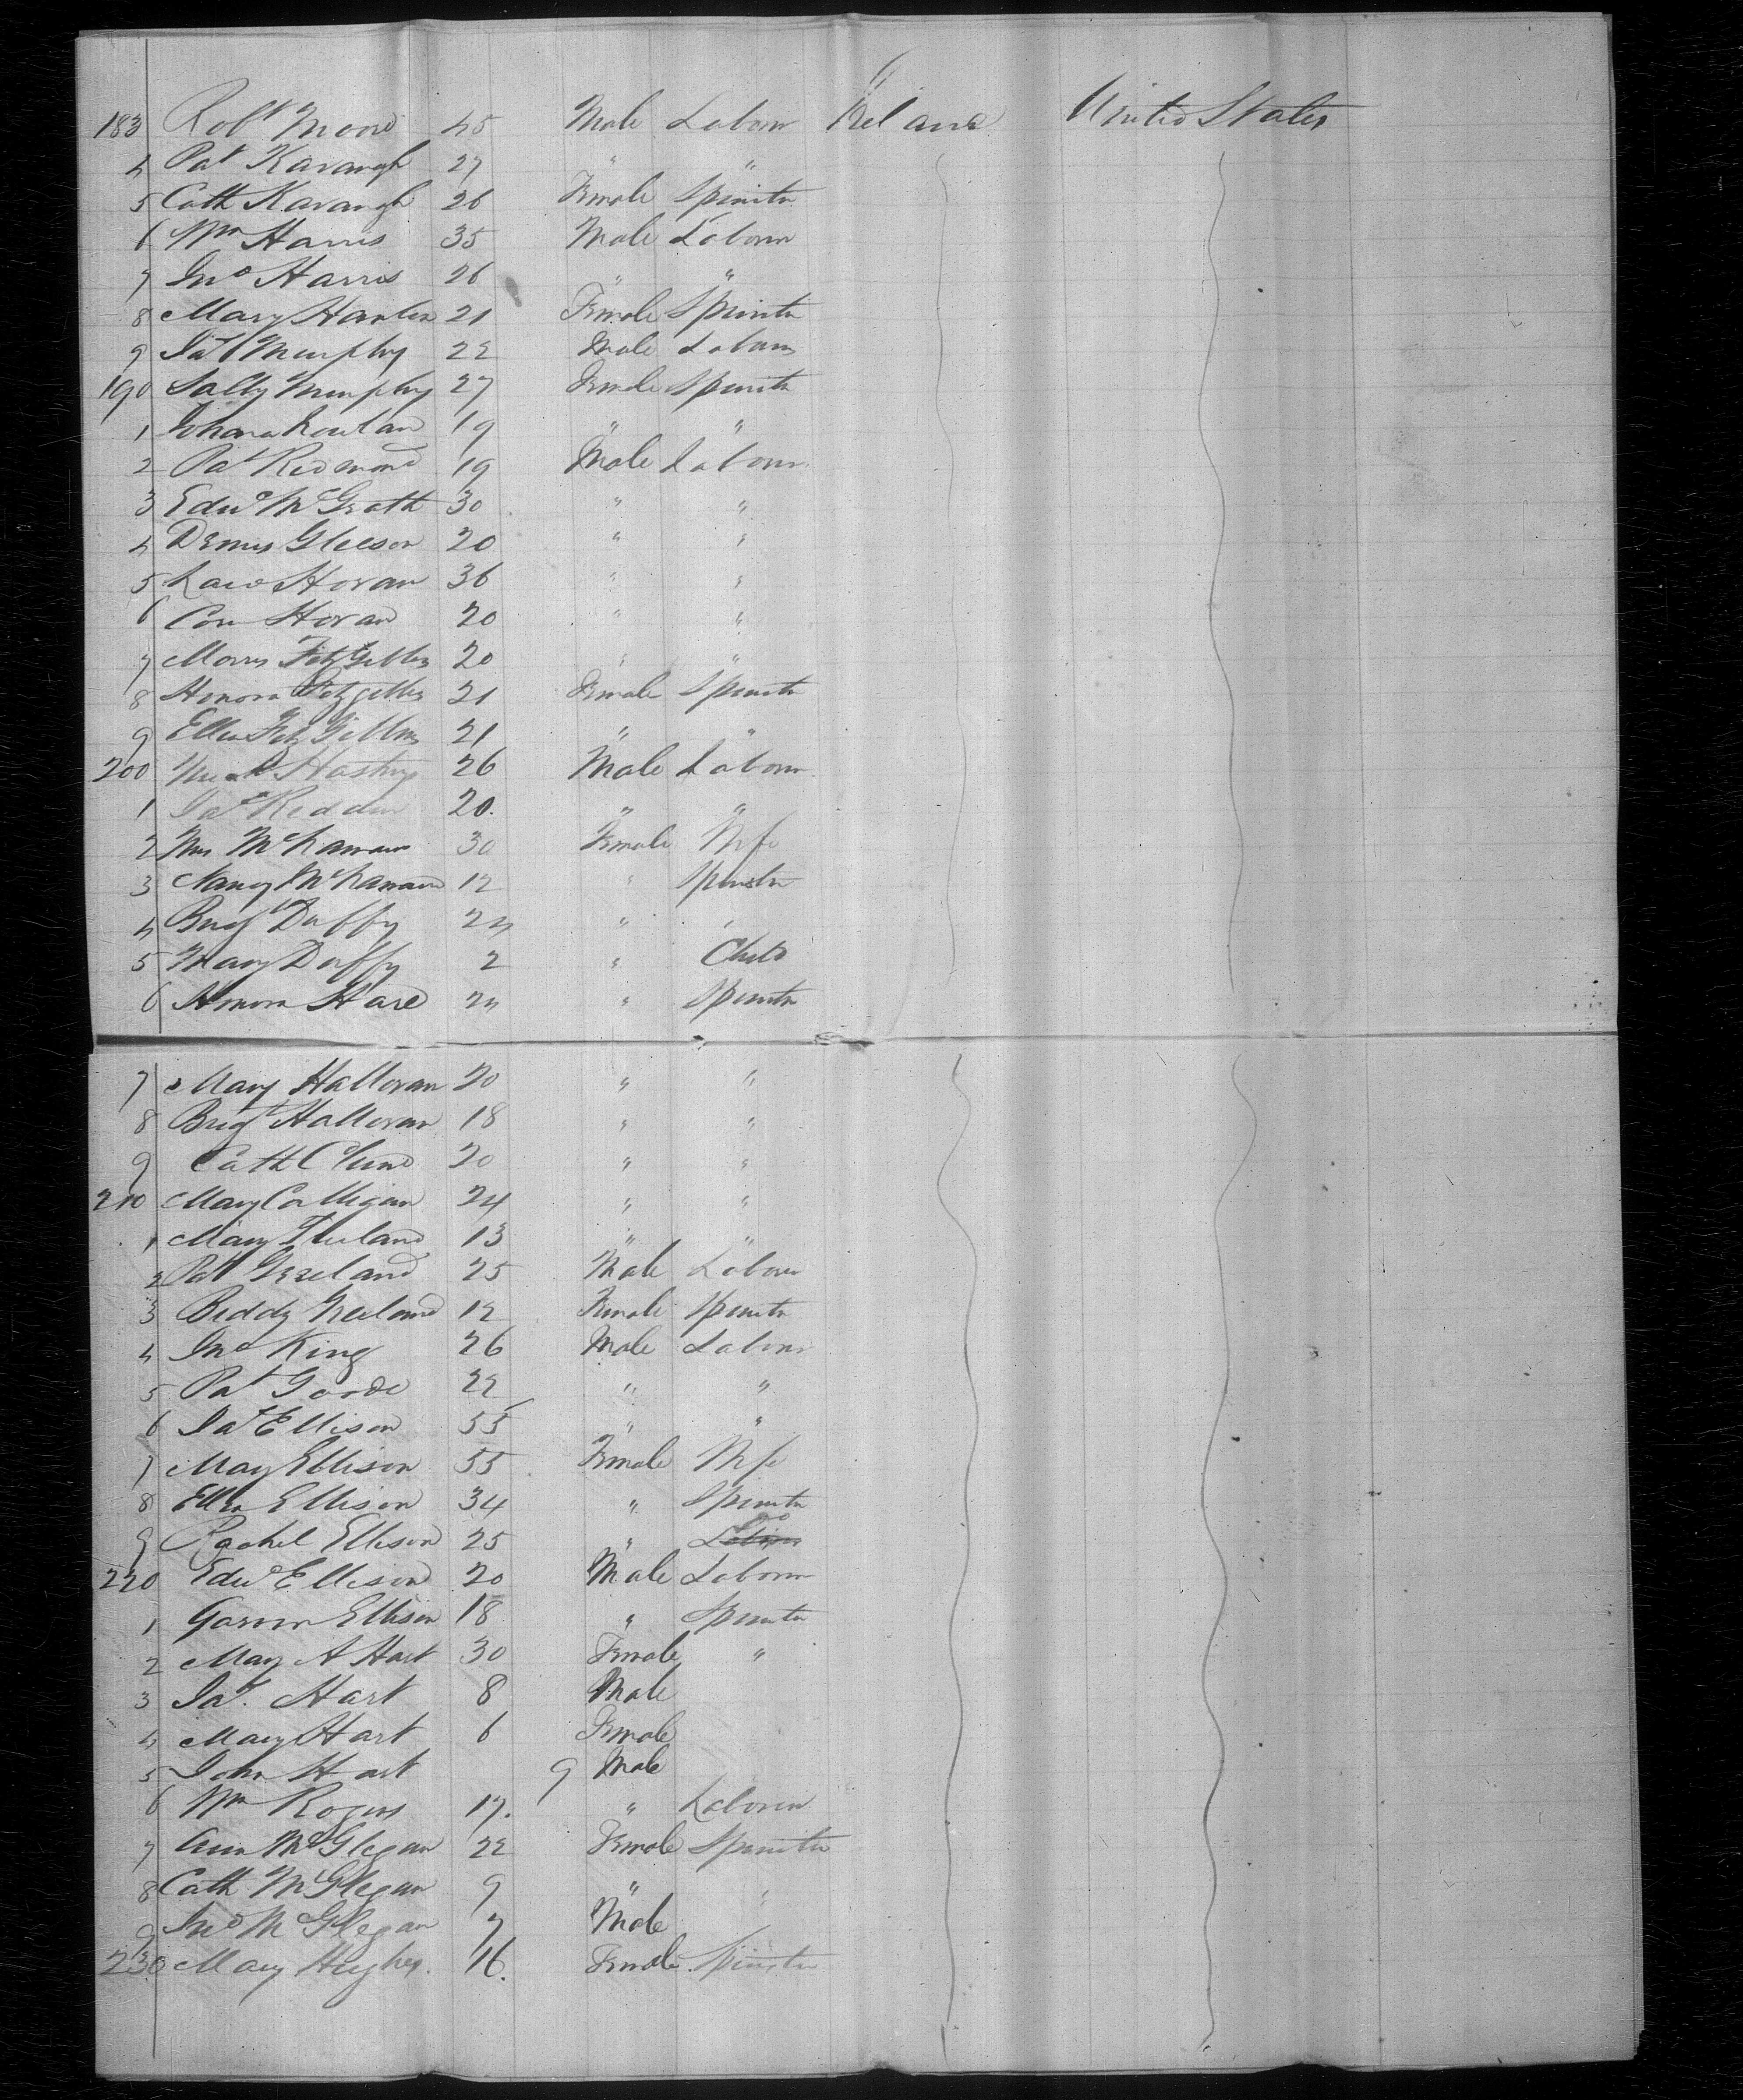 183 Robt Moore 45 Male Labourr Ireland United States
4 Pat Kavangh 27 " "
5 Cath Kavangh 26 Female Spinstr
6 Wm Harris 35 Male Labourr
7 Jno Harris 26 " "
8 Mary Hanlen 21 Female Spinstr
9 Jas Murphy 22 Male Labourr
190 Sally Murphy 27 Female Spinstr
1 Johana 19 " "
2 Pat Redmond 19 Male Labourr
3 Edwd McGrath 30 " "
4 Dennis Gleeson 20 " "
5 Lawe Horan 36 " "
6 Con Horan 20 " "
7 Morris FitzGibbs 20 " "
8 Honora Fitzgibbs 21 Female Spinstr
9 Ellen FitzGibbins 21 " "
200 Hastings 26 Male Labourr
1 Pat Redden 20. " "
2 Mrs 30 Female Wife
3 Nancy 12 " Spinstr
4 Brigt Duffy 24 " "
5 Mary Duffy 2 " Child
6 Honora Hare 24 " Spinstr
7 Mary Halloran 20 " "
8 Brigt Halloran 18 " "
9 Cath 20 " "
210 Mary Colligan 24 " "
1 Mary 13 " "
2 Pat 25 Male Labourr
3 Biddy 12 Female Spinstr
4 Jno King 26 Male Labourr
5 Pat Goode 22 " "
6 Jas Ellison 55 " "
7 Mary Ellison 55 Female Wife
8 Ellen Ellison 34 " Spinstr
9 Rachel Ellison 25 " Labourr do
220 Edwd Ellison 20 Male Labourr
1 Ellison 18 " Spinstr
2 Mary A Hart 30 Female "
3 Jas. Hart 8 Male
4 Mary Hart 6 Female
5 John Hart 9 Male
6 Wm Rogers 17. " Labourer
7 Ann McGlegan 22 Female Spinstr
8 Cath McGlegan 9 " "
9 Jno McGlegan 7 Male
230 Mary Hughes. 16. Female Spinstr